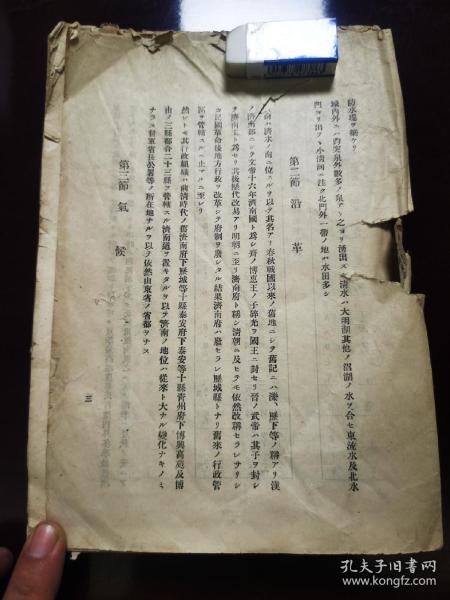 防水堤ヲ築ケリ
城內外ニハ趵突泉外數多ノ泉アリ之ヨリ湧出スル清水ハ大明湖其他ノ沼湖ノ水ヲ合セ東流水及北水
門ヨリ出テ小清河ニ注ク北門外一帶ノ地ハ水田多シ
第二節 沿革
濟南ハ濟水ノ南ニ位スルヲ以テ其名アリ春秋戰國以來ノ舊地ニシテ舊記ニハ濼、歷下等ノ稱アリ漢
ノ濟南郡ニシテ文帝十六年濟南國ト爲シ齊ノ博惠王ノ子辟光ヲ國王ニ封セリ晉ノ武帝ハ其子ヲ封シ
テ濟南王ト爲セリ其後歷代改易アリ明朝ニ至リ濟南府ト稱シ清朝ニ及ヒテモ依然改稱セラレサリシ
カ民國革命後地方行政ヲ改革シテ府制ヲ廢シタル結果濟南府ハ廢セラレ歷城縣トナリ舊來ノ行政管
區ヲ管轄スルニ止マルニ至レリ
然レトモ其行政組織ハ前清時代ノ舊濟南府下歷城等十縣泰安府下泰安等十縣青州府下博興高苑及博
山ノ三縣都合二十三縣ヲ管轄スル濟南道ヲ置キタルヲ以テ濟南ノ地位ハ從來ト大ナル變化ナキノミ
ナラス督軍省長公署等ノ所在地ナルヲ以テ依然山東省ノ省都ヲナス
第三節 氣候
三
孔夫子旧书网
www.kongfz.com